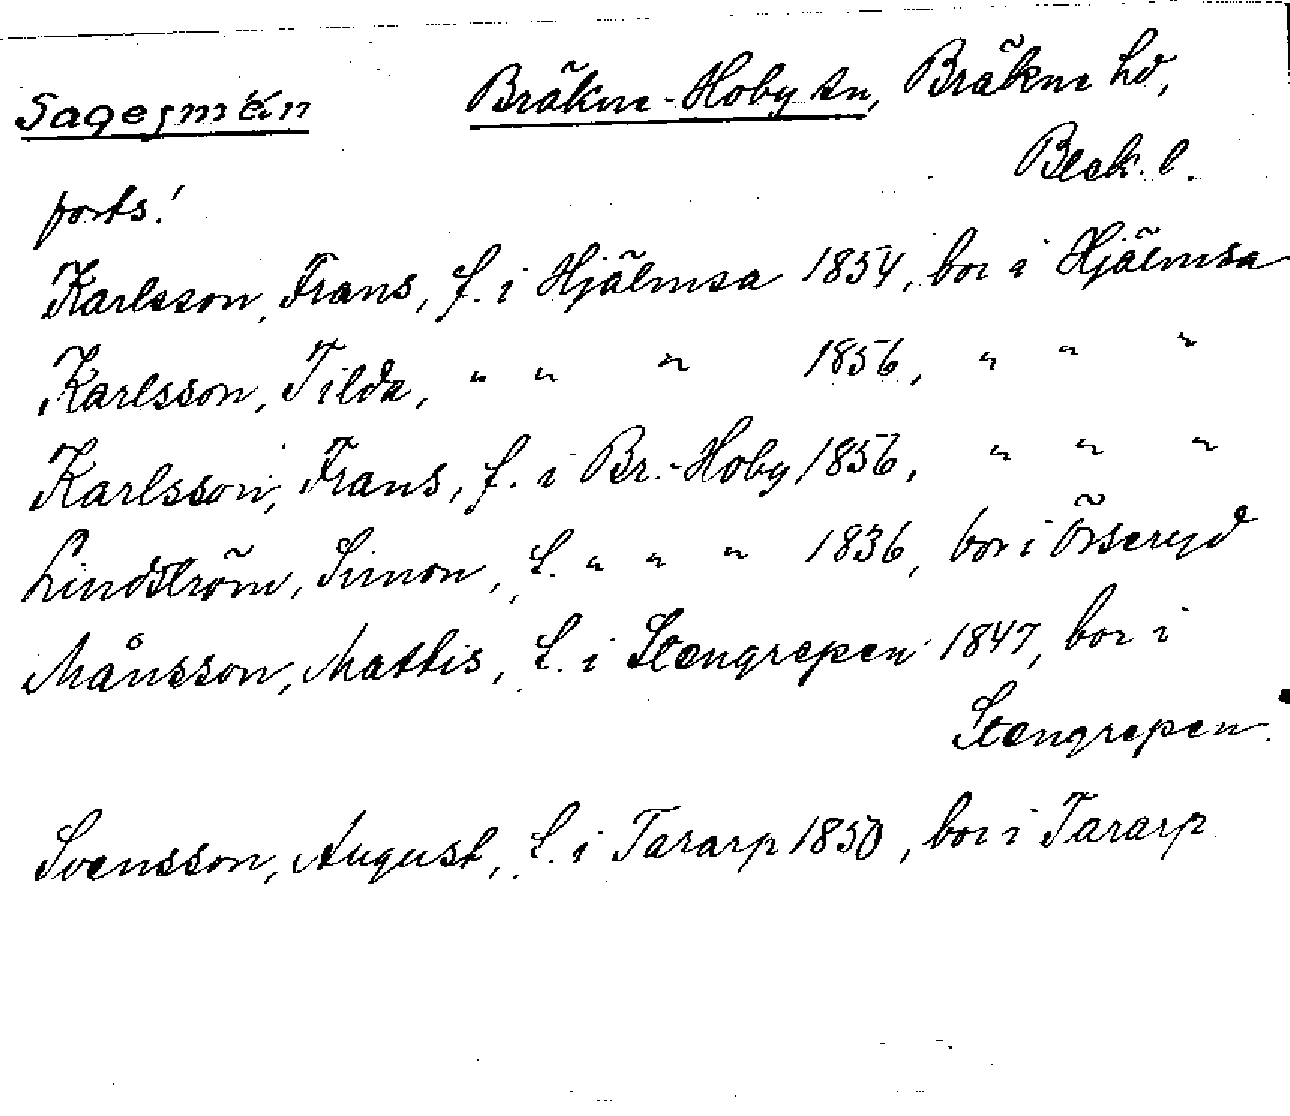 Sagesmän Bräkne-Hoby sn, Bräkne hd,
Blek. l.
forts.!
Karlsson, Frans, f. i Hjälmsa 1854, bor i Hjälmsa
Karlsson, Tilda, " " " 1856, " " "
Karlsson, Frans, f. i Br.-Hoby 1856, " " "
Lindström, Simon, f. " " " 1836, bor i Örseryd
Månsson, Mattis, f. i Stengrepen 1847, bor i
Stengrepen.
Svensson, August, f. i Tararp 1850, bor i Tararp